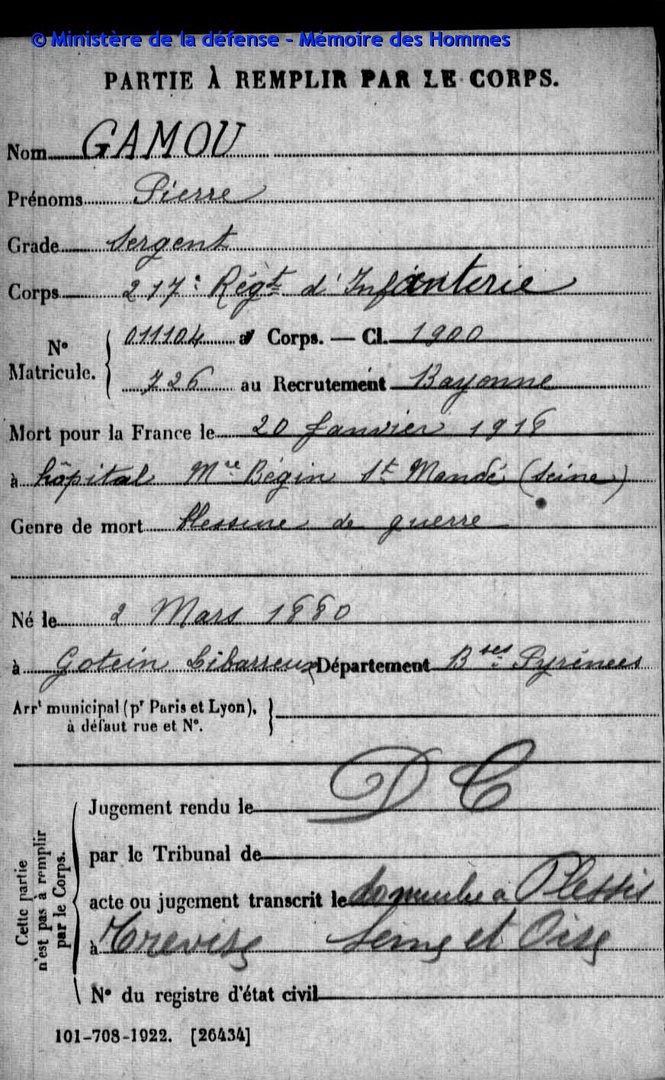 © Ministère de la défense - Mémoire des Hommes
PARTIE À REMPLIR PAR LE CORPS.
Nom GAMOU
Prénoms Pierre
Grade Sergent
Corps 217e Régt d'Infanterie
N° Matricule. 011104 au Corps. — Cl. 1900
726 au Recrutement Bayonne
Mort pour la France le 20 Janvier 1916
à hôpital Mre Bégin St Mandé (Seine)
Genre de mort blessure de guerre
Né le 2 Mars 1880
à Gotein Libarreux Département Bses Pyrénées
Arrt municipal (pr Paris et Lyon), à défaut rue et N°.
DC
Jugement rendu le
par le Tribunal de
acte ou jugement transcrit le domicilié à Plessis
à Trevise Seine et Oise
N° du registre d'état civil
Cette partie n'est pas à remplir par le Corps.
101-708-1922. [26434]